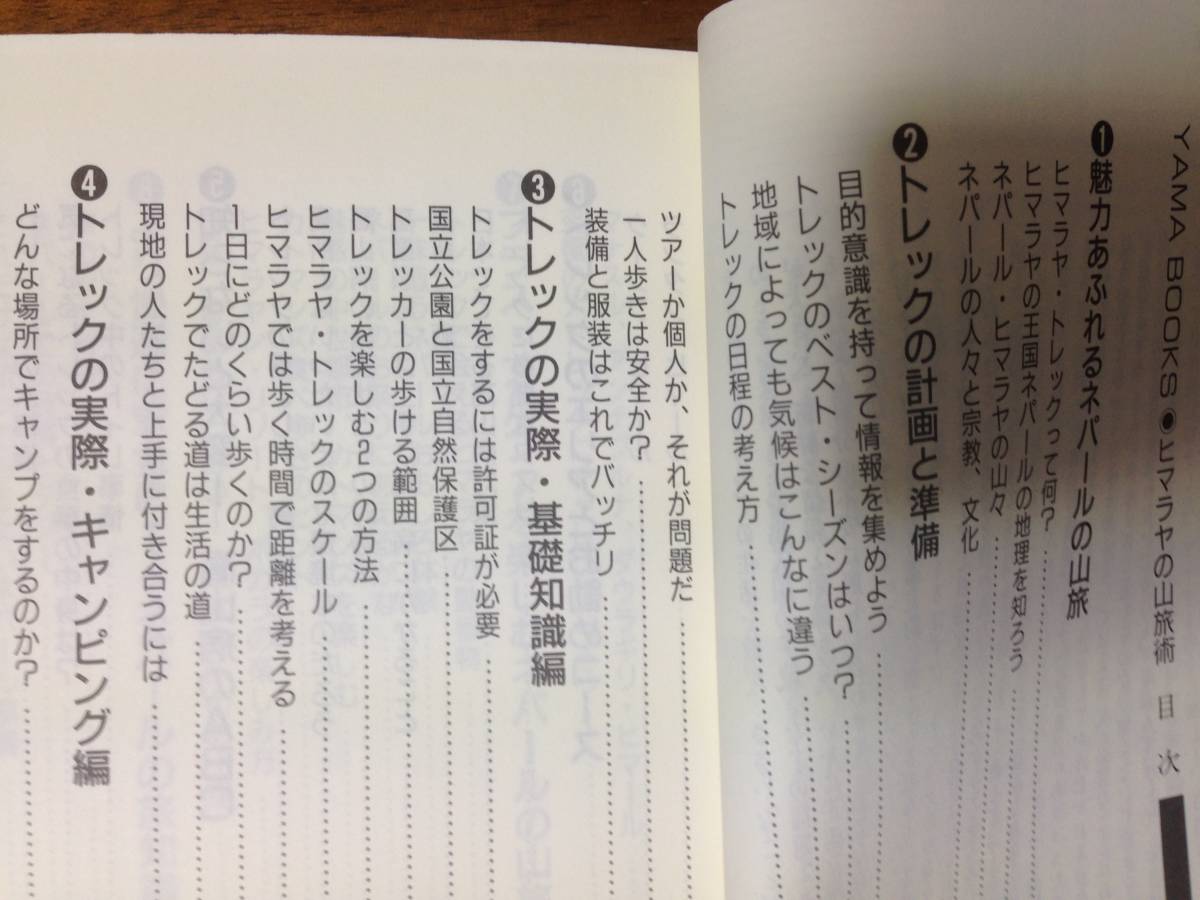 YAMA BOOKS◉ヒマラヤの山旅術 目次
❶魅力あふれるネパールの山旅
ヒマラヤ・トレックって何?
ヒマラヤの王国ネパールの地理を知ろう
ネパール・ヒマラヤの山々
ネパールの人々と宗教、文化
❷トレックの計画と準備
目的意識を持って情報を集めよう
トレックのベスト・シーズンはいつ?
地域によっても気候はこんなに違う
トレックの日程の考え方
ツアーか個人か、それが問題だ
一人歩きは安全か?
装備と服装はこれでバッチリ
❸トレックの実際・基礎知識編
トレックをするには許可証が必要
国立公園と国立自然保護区
トレッカーの歩ける範囲
トレックを楽しむ2つの方法
ヒマラヤ・トレックのスケール
ヒマラヤでは歩く時間で距離を考える
1日にどのくらい歩くのか?
トレックでたどる道は生活の道
現地の人たちと上手に付き合うには
❹トレックの実際・キャンピング編
どんな場所でキャンプをするのか?